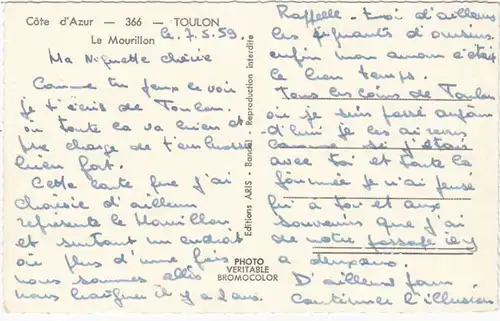 Côte d'Azur — 366 — TOULON
Le Mourillon
Le 7.5.59
Ma chérie
Comme tu peux le voir
je t'écris de Toulon.
où toute ça va bien et
me charge de t'embrasser
bien fort.
Cette carte que j'ai
choisie d'ailleurs
représente le Mourillon
et surtout un endroit
où plus d'une fois
nous sommes allés
nous baigner il y a 2 ans.
Editions ARIS - Bandol - Reproduction Interdite
PHOTO
VERITABLE
BROMOCOLOR
Rappelle-toi d'ailleurs
les piquants d'oursins
enfin mon amour c'était
le bon temps.
Tous les coins de Toulon
où je suis passé aujour
-d'hui je les ai revus
comme si j'étais
avec toi et toute la
journée je n'ai pensé
qu'à toi et aux
souvenirs que j'ai
de notre passage il y
a deux ans.
D'ailleurs pour
continuer l'illusion